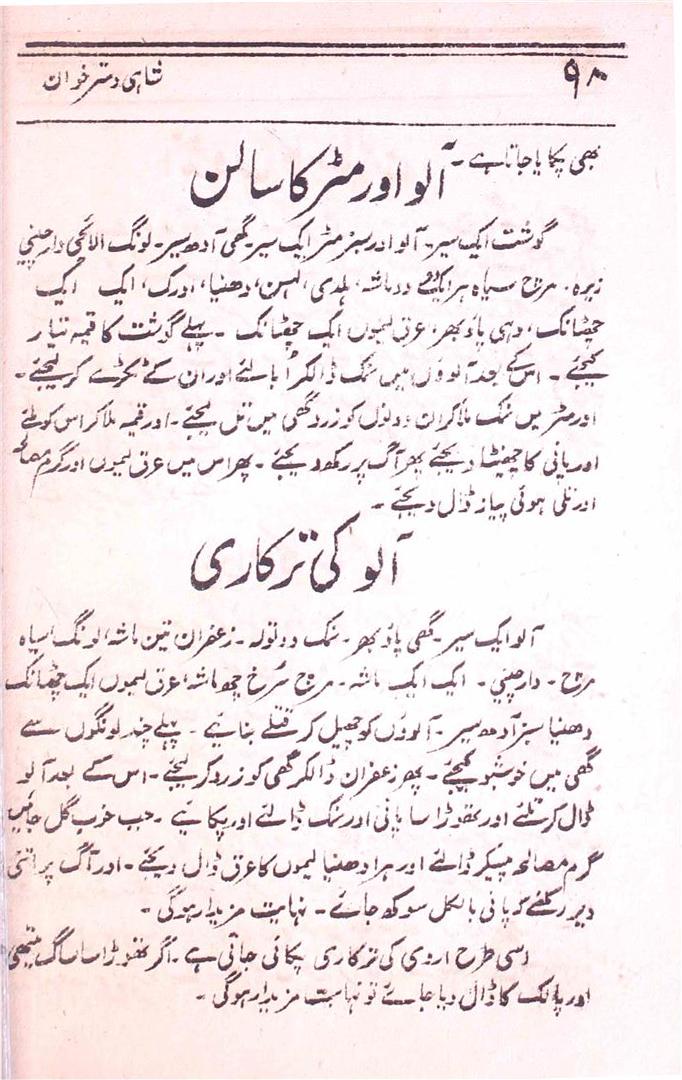 ۹۸
شاہی دسترخوان
بھی پکایا جاتا ہے۔
آلو اور مٹر کا سالن
گوشت ایک سیر۔ آلو اور سبز مٹر ایک سیر۔ گھی آدھ سیر۔ لونگ الائچی دارچینی
زیرہ۔ مرچ سیاہ ہر ایک دو دو ماشہ، ہلدی، لہسن، دھنیا، ادرک، ایک ایک
چھٹانک، دہی پاؤ بھر، عرق لیموں ایک چھٹانک ۔ پہلے گوشت کا قیمہ تیار
کیجئے ۔ اس کے بعد آلوؤں میں نمک ڈالکر اُبالئے اور ان کے ٹکڑے کر لیجئے۔
اور مٹر میں نمک ملا کر ان دونوں کو زرد گھی میں تل لیجئے۔ اور قیمہ ملا کر اس کو تلئے
اور پانی کا چھینٹا دیجئے پھر آگ پر رکھ دیجئے ۔ پھر اس میں عرق لیموں اور گرم مصالحہ
اور تلی ہوئی پیاز ڈال دیجئے ۔
آلو کی ترکاری
آلو ایک سیر۔ گھی پاؤ بھر۔ نمک دو تولہ۔ زعفران تین ماشہ، لونگ سیاہ
مرچ۔ دارچینی۔ ایک ایک ماشہ۔ مرچ سُرخ چھ ماشہ، عرق لیموں ایک چھٹانک
دھنیا سبز آدھ سیر۔ آلوؤں کو چھیل کر قتلے بنائیے ۔ پہلے چند لونگوں سے
گھی میں خوشبو کیجئے۔ پھر زعفران ڈالکر گھی کو زرد کر لیجئے۔ اس کے بعد آلو
ڈال کر تلئے اور تھوڑا سا پانی اور نمک ڈالئے اور پکائیے ۔ جب خوب گل جائیں
گرم مصالحہ پیسکر ڈالئے اور ہرا دھنیا لیموں کا عرق ڈال دیجئے ۔ اور آگ پر اتنی
دیر رکھئے کہ پانی بالکل سوکھ جائے۔ نہایت مزیدار ہوگی ۔
اسی طرح اروی کی ترکاری پکائی جاتی ہے۔ اگر تھوڑا سا ساگ میتھی
اور پالک کا ڈال دیا جائے تو نہایت مزیدار ہوگی ۔